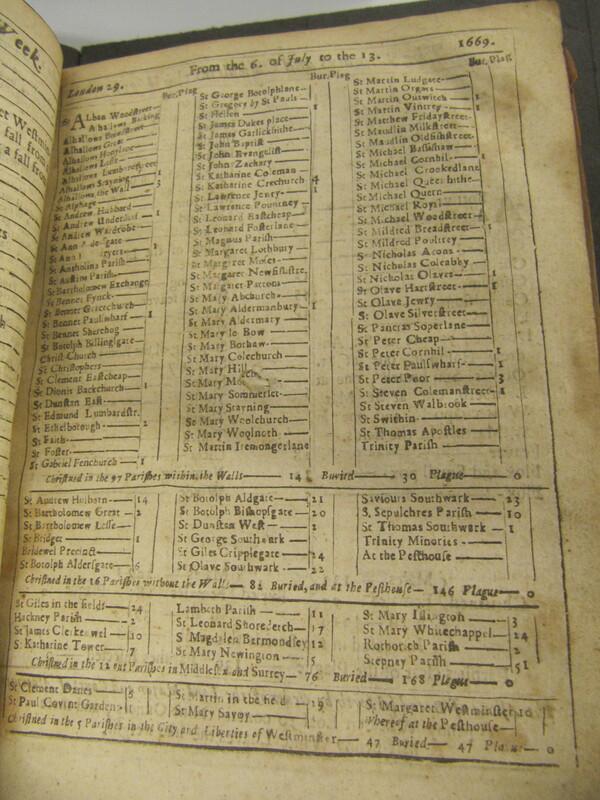 Week.
London 29. From the 6. of July to the 13. 1669.
Bur. Plag
St ALban Woodstreet
Alhallows Barking
Alhallows Breadstreet
Alhallows Great 1
Alhallows Honylane
Alhallows Less
Alhallows Lumbardstreet
Alhallows Stayning 1
Alhallows the Wall 3
St Alphage
St Andrew Hubbard
St Andrew Undershaf 1
St Andrew Wardrobe
St Ann
St Ann
St Antholins Parish
St Austins Parish
St Bartholomew Exchange
St Bennet Fynck
St Bennet Gracechurch
St Bennet Paulswharf 1
St Bennet Sherehog
St Botolph Billingsgate
Christ Church
St Christophers
St Clement Eastcheap
St Dionis Backchurch 1
St Dunstan East
St Edmund Lumbardstr.
St Ethelborough 2
St Faith
St Foster
St Gabriel Fenchurch 1
Bur. Plag
St George Botolphlane
St Gregory by St Pauls 1
St Hellen
St James Dukes place
St James Garlickhithe
St John Baptist
St John Evangelist
St John Zachary
St Katharine Coleman
St Katharine Crechurch 4
St Lawrence Jewry 1
St Lawrence Pountney
St Leonard Eastcheap
St Leonard Fosterlane
St Magnus Parish
St Margaret Lothbury
St Margaret Moses
St Margaret Newfishstre.
St Margaret Pattons
St Mary Abchurch
St Mary Aldermanbury 1
St Mary Aldermary
St Mary le Bow
St Mary Bothaw
St Mary Colechurch
St Mary Hill
St Mary Mo
St Mary Sommerset
St Mary Stayning
St Mary Woolchurch
St Mary Woolnoth
St Martin Iremongerlane
Bur. Plag
St Martin Ludgate
St Martin Orgars
St Martin Outwitch 1
St Martin Vintrey 1
St Matthew Fridaystreet
St Maudlin Milkstreet
St Maudlin Oldfishstreet
St Michael Bassishaw
St Michael Cornhil 1
St Michael Crookedlane
St Michael Queenhithe
St Michael Quern
St Michael Royal
St Michael Woodstreet
St Mildred Breadstreet 1
St Mildred Poultrey
St Nicholas Acons
St Nicholas Coleabby
St Nicholas Olaves 1
St Olave Hartstreet 1
St Olave Jewry
St Olave Silverstreet
St Pancras Soperlane
St Peter Cheap
St Peter Cornhil 1
St Peter Paulswharf 1
St Peter Poor 3
St Steven Colemanstreet 1
St Steven Walbrook
St Swithin
St Thomas Apostles
Trinity Parish
Christned in the 97 Parishes within the Walls 14 Buried 30 Plague 0
St Andrew Holborn 14
St Bartholomew Great 2
St Bartholomew Lesse
St Bridget 1
Bridewel Precinct
St Botolph Aldersgate 6
St Botolph Aldgate 21
St Botolph Bishopsgate 20
St Dunstan West 1
St George Southwark
St Giles Cripplegate 24
St Olave Southwark 22
Saviours Southwark 23
S. Sepulchres Parish 10
St Thomas Southwark 1
Trinity Minories
At the Pesthouse
Christned in the 16 Parishes without the Walls 82 Buried, and at the Pesthouse 146 Plague 0
St Giles in the fields 24
Hackney Parish 2
St James Clerkenwel 10
St Katharine Tower 7
Lambeth Parish 11
St Leonard Shoreditch 7
S Magdalen Bermondsey 12
St Mary Newington 5
St Mary Islington 3
St Mary Whitechappel 24
Rothorith Parish 2
Stepney Parish 51
Christned in the 12 out Parishes in Middlesex and Surrey 76 Buried 168 Plague 0
St Clement Danes 8
St Paul Covent Garden 1
St Martin in the field 19
St Mary Savoy
St Margaret Westminster 10
Whereof at the Pesthouse
Christned in the 5 Parishes in the City and Liberties of Westminster 47 Buried 47 Plague 0